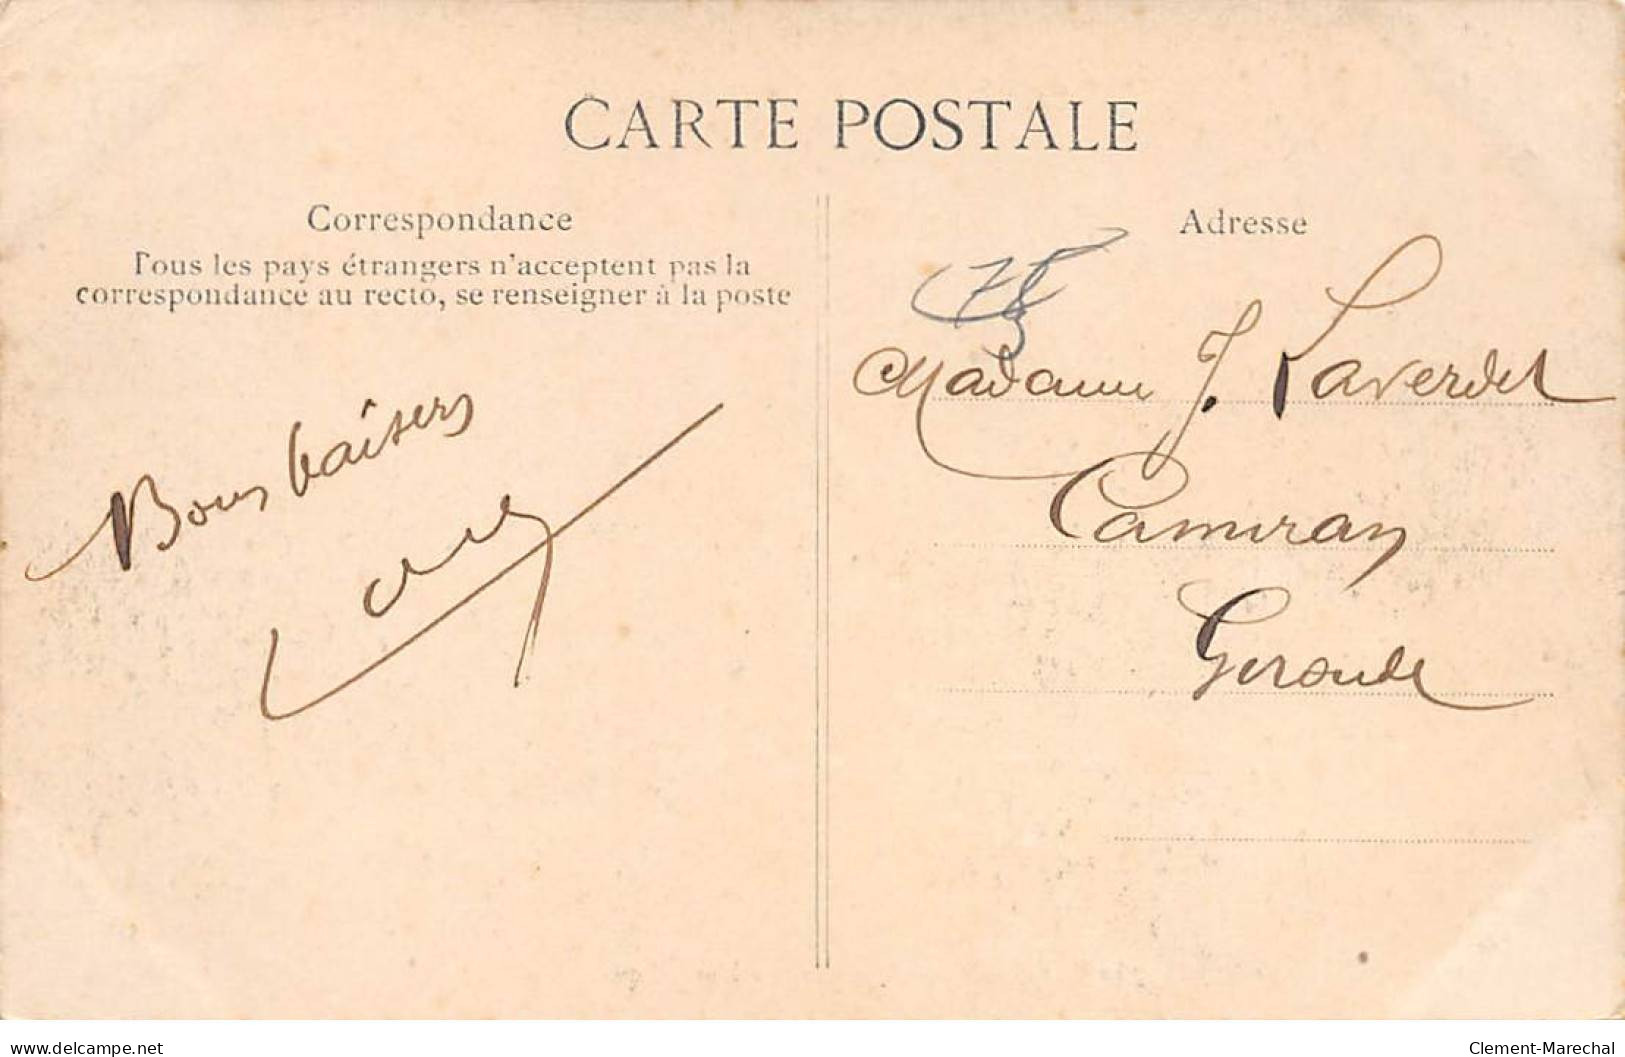 CARTE POSTALE
Correspondance
Tous les pays étrangers n'acceptent pas la
correspondance au recto, se renseigner à la poste
Bons baisers
Adresse
Madame J. Laverdet
Camiran
Gironde
delcampe.net
Clement-Marechal